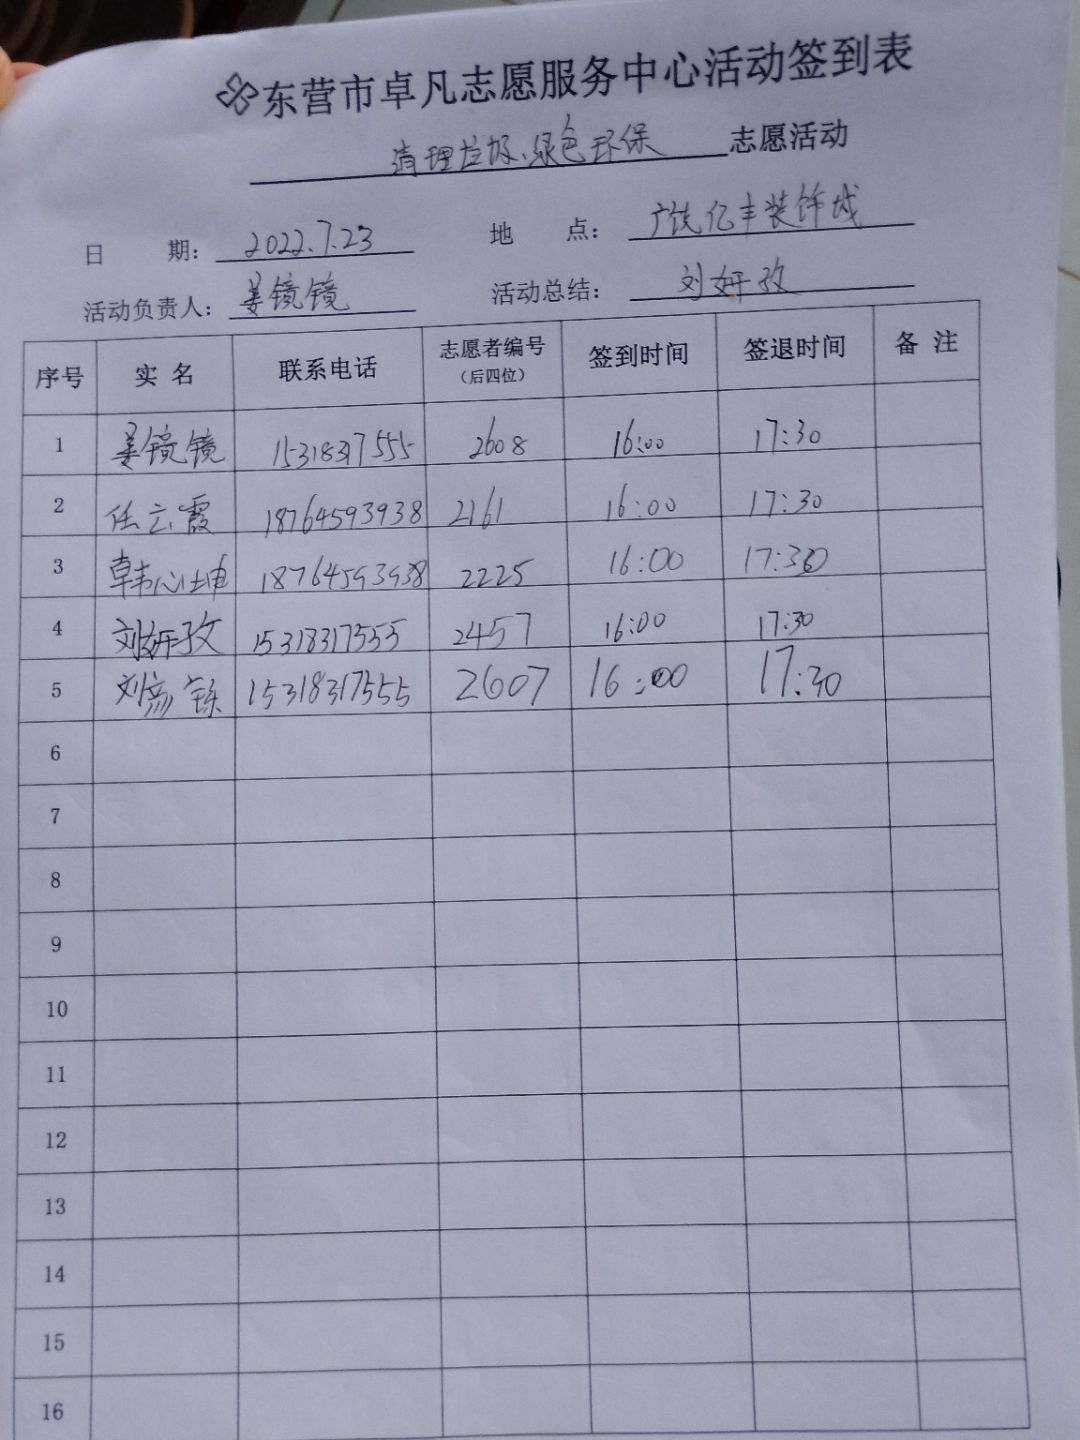 东营市卓凡志愿服务中心活动签到表
清理垃圾、绿色环保 志愿活动
日 期: 2022.7.23 地 点: 广饶亿丰装饰城
活动负责人: 姜镜镜 活动总结: 刘妍孜
序号 实 名 联系电话 志愿者编号 (后四位) 签到时间 签退时间 备 注
1 姜镜镜 15318317555 2608 16:00 17:30
2 任云霞 18764593938 2161 16:00 17:30
3 韩心坤 18764593938 2225 16:00 17:30
4 刘妍孜 15318317555 2457 16:00 17:30
5 刘彦铄 15318317555 2607 16:00 17:30
6
7
8
9
10
11
12
13
14
15
16